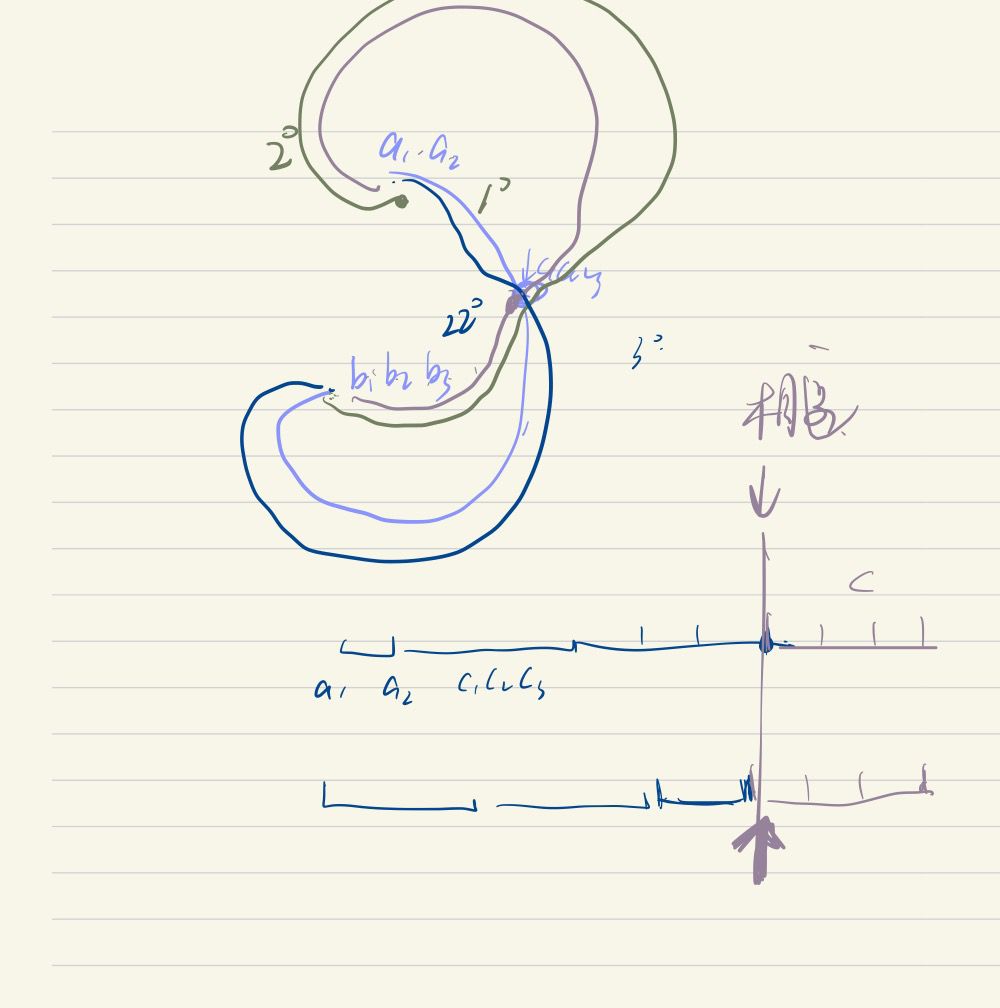 a₁ a₂
2°
1°
c₁c₂c₃
22°
3°
b₁ b₂ b₃
相遇
c
a₁ a₂ c₁c₂c₃